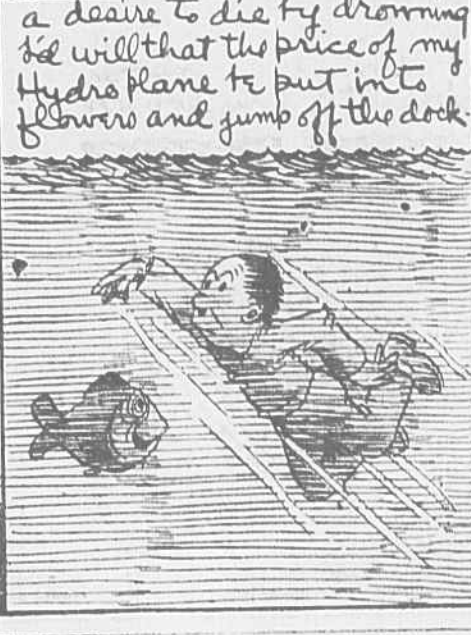 a desire to die by drowning
I'd will that the price of my
Hydroplane be put into
flowers and jump off the dock.